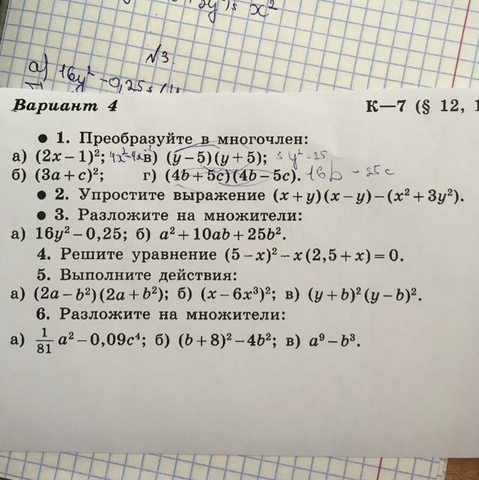 x²
№3.
а) 16y² – 0,25
Вариант 4 К—7 (§ 12, 1
● 1. Преобразуйте в многочлен:
а) (2x – 1)²; в) (y – 5)(y + 5); y² – 25
б) (3a + c)²; г) (4b + 5c)(4b – 5c). 16b – 25c
● 2. Упростите выражение (x + y)(x – y) – (x² + 3y²).
● 3. Разложите на множители:
а) 16y² – 0,25; б) a² + 10ab + 25b².
4. Решите уравнение (5 – x)² – x(2,5 + x) = 0.
5. Выполните действия:
а) (2a – b²)(2a + b²); б) (x – 6x³)²; в) (y + b)²(y – b)².
6. Разложите на множители:
а) 1/81 a² – 0,09c⁴; б) (b + 8)² – 4b²; в) a⁹ – b³.